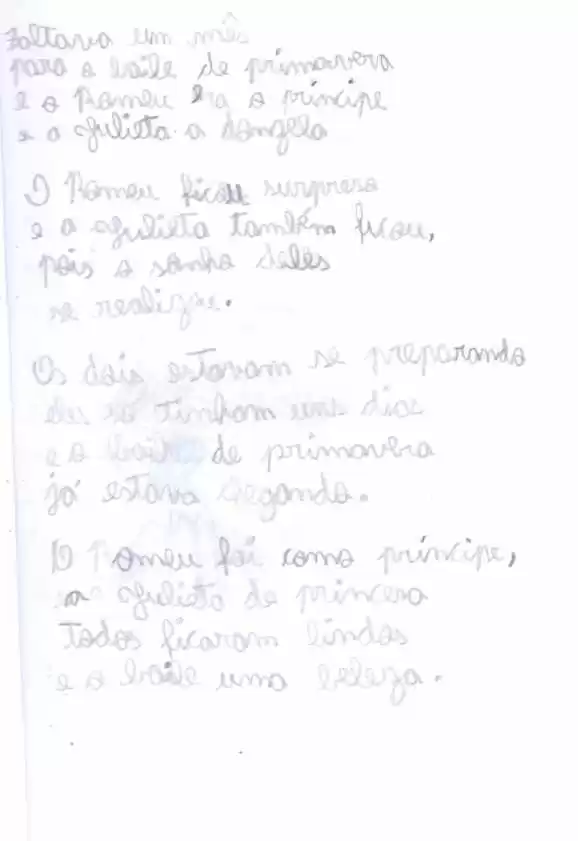 Faltava um mês
para o baile de primavera
e o Romeu era o príncipe
e a Julieta a donzela
O Romeu ficou surpreso
e a Julieta também ficou,
pois o sonho deles
se realizou.
Os dois estavam se preparando
eles só tinham uns dias
e o baile de primavera
já estava chegando.
O Romeu foi como príncipe,
a Julieta de princesa
todos ficaram lindos
e o baile uma beleza.